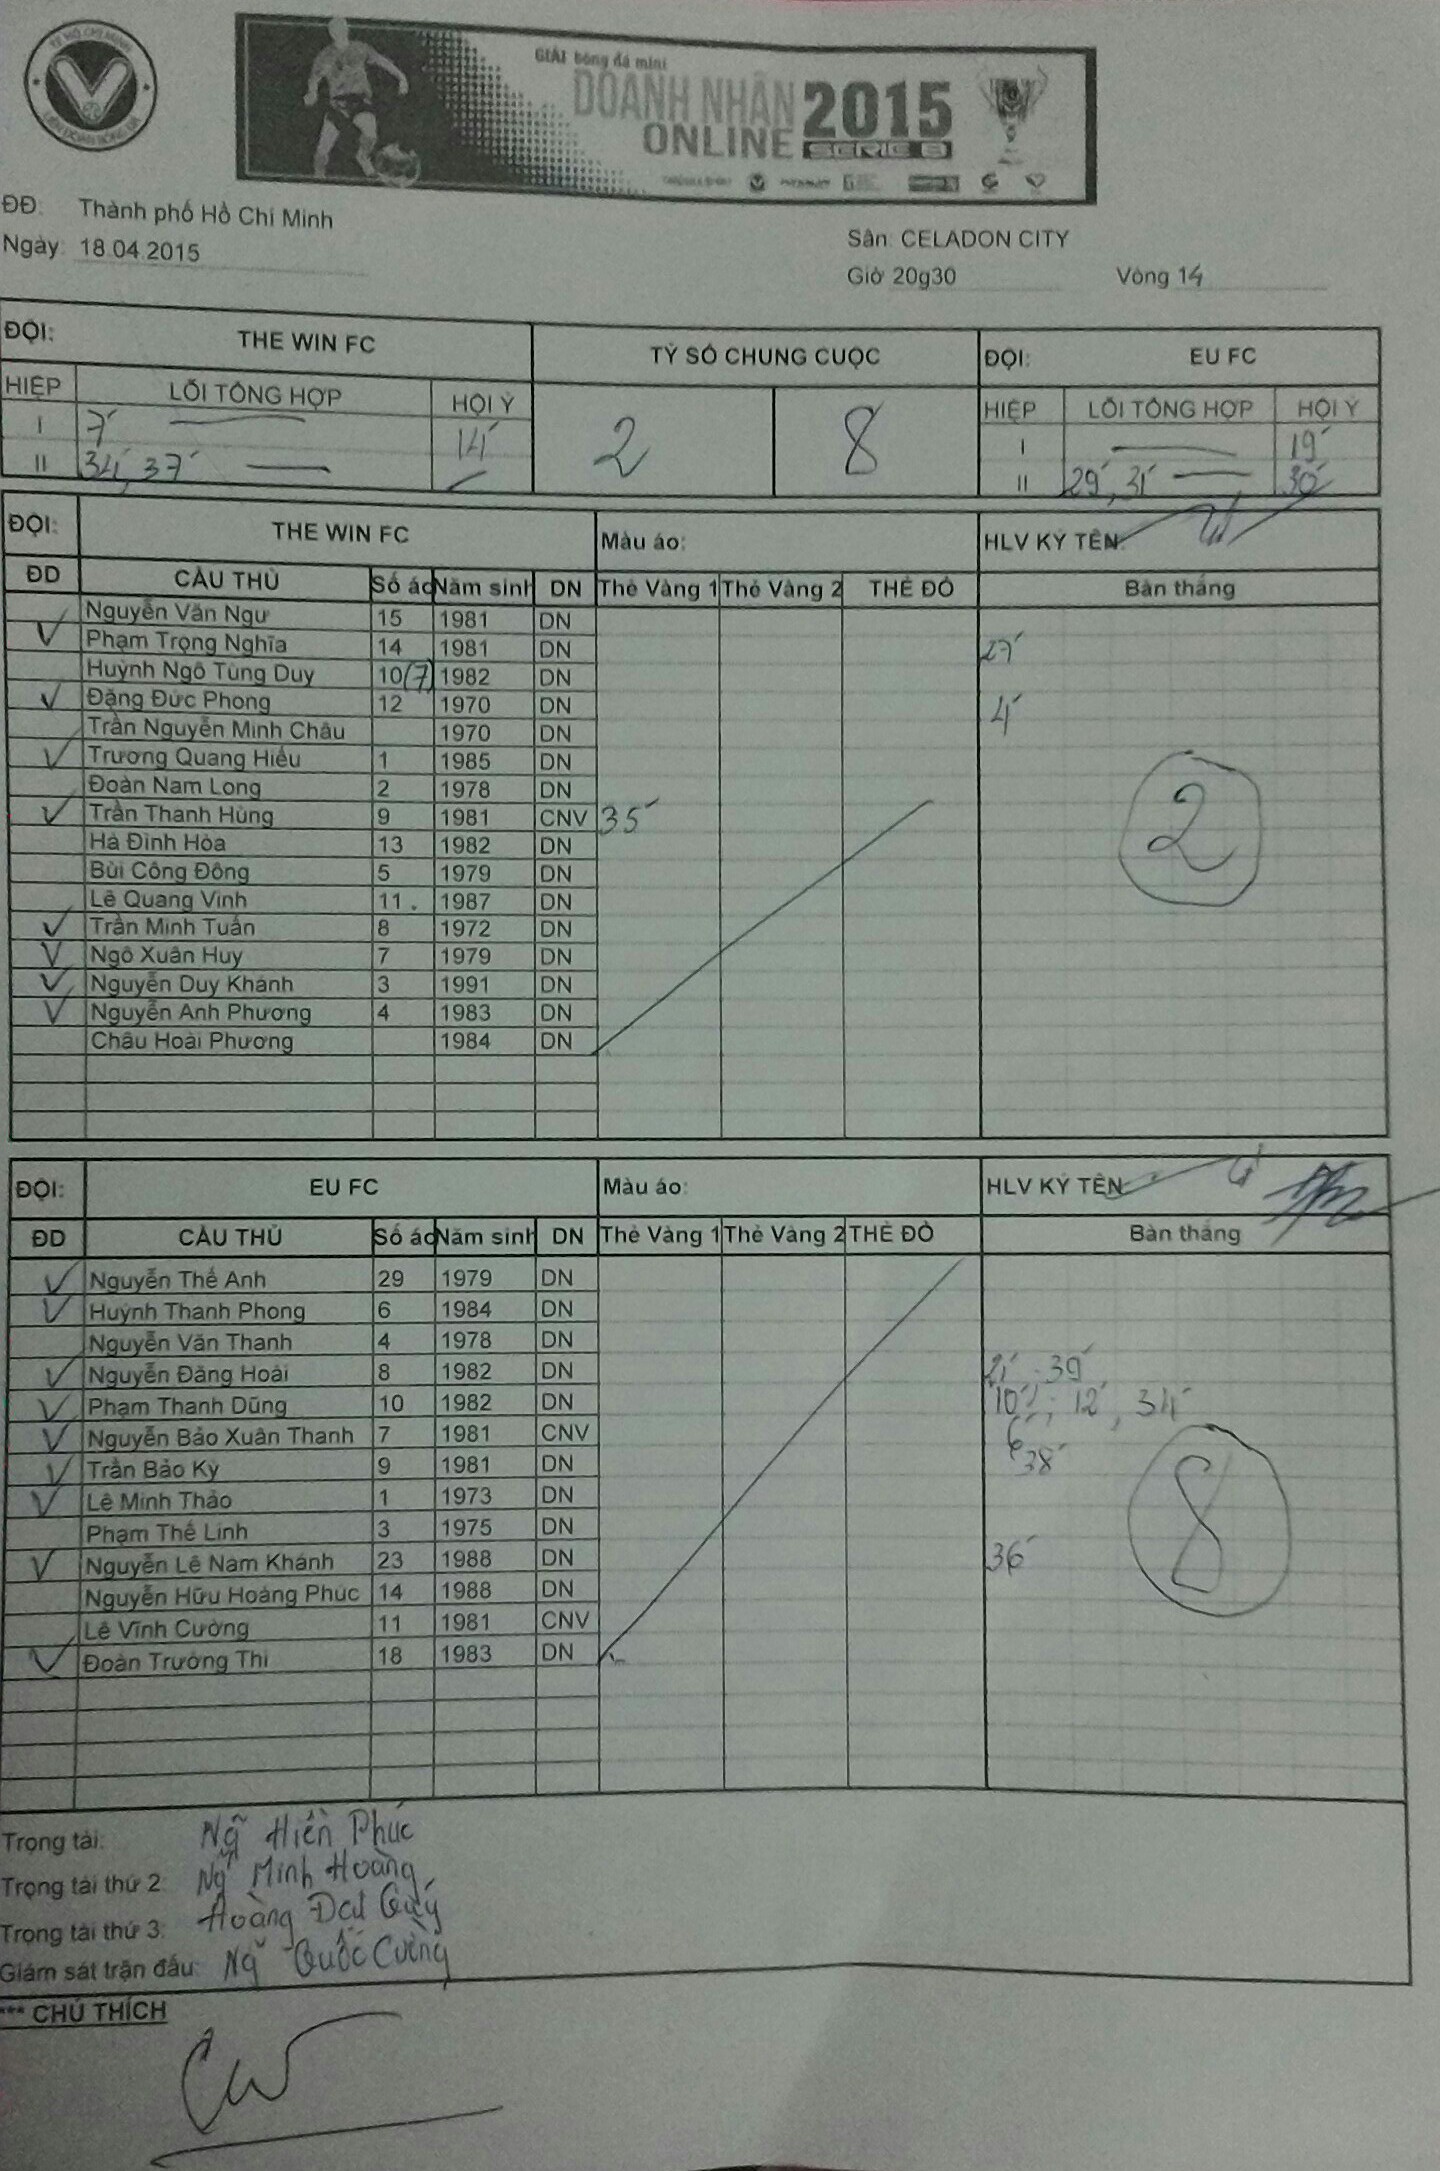 TP HỒ CHÍ MINH
LIÊN ĐOÀN BÓNG ĐÁ
GIẢI bóng đá mini
DOANH NHÂN 2015
ONLINE SERIE B
ĐĐ: Thành phố Hồ Chí Minh
Ngày: 18.04.2015
Sân: CELADON CITY
Giờ 20g30 Vòng 14
ĐỘI: THE WIN FC TỶ SỐ CHUNG CUỘC ĐỘI: EU FC
HIỆP LỖI TỔNG HỢP HỘI Ý 2 8 HIỆP LỖI TỔNG HỢP HỘI Ý
I 7' 14' I 19'
II 34', 37' II 29', 31' 30'
ĐỘI: THE WIN FC Màu áo: HLV KÝ TÊN:
ĐD CẦU THỦ Số áo Năm sinh DN Thẻ Vàng 1 Thẻ Vàng 2 THẺ ĐỎ Bàn thắng
Nguyễn Văn Ngư 15 1981 DN
Phạm Trọng Nghĩa 14 1981 DN 27'
Huỳnh Ngô Tùng Duy 10(7) 1982 DN
Đặng Đức Phong 12 1970 DN 4'
Trần Nguyễn Minh Châu 1970 DN
Trương Quang Hiếu 1 1985 DN
Đoàn Nam Long 2 1978 DN
Trần Thanh Hùng 9 1981 CNV 35' 2
Hà Đình Hòa 13 1982 DN
Bùi Công Đông 5 1979 DN
Lê Quang Vinh 11. 1987 DN
Trần Minh Tuấn 8 1972 DN
Ngô Xuân Huy 7 1979 DN
Nguyễn Duy Khánh 3 1991 DN
Nguyễn Anh Phương 4 1983 DN
Châu Hoài Phương 1984 DN
ĐỘI: EU FC Màu áo: HLV KÝ TÊN:
ĐD CẦU THỦ Số áo Năm sinh DN Thẻ Vàng 1 Thẻ Vàng 2 THẺ ĐỎ Bàn thắng
Nguyễn Thế Anh 29 1979 DN
Huỳnh Thanh Phong 6 1984 DN
Nguyễn Văn Thanh 4 1978 DN
Nguyễn Đăng Hoài 8 1982 DN 21', 39'
Phạm Thanh Dũng 10 1982 DN 10', 12', 34'
Nguyễn Bảo Xuân Thanh 7 1981 CNV 6'
Trần Bảo Kỳ 9 1981 DN 38'
Lê Minh Thảo 1 1973 DN 8
Phạm Thế Linh 3 1975 DN
Nguyễn Lê Nam Khánh 23 1988 DN 36'
Nguyễn Hữu Hoàng Phúc 14 1988 DN
Lê Vĩnh Cường 11 1981 CNV
Đoàn Trường Thi 18 1983 DN
Trọng tài: Ng~ Hiền Phúc
Trọng tài thứ 2: Ng~ Minh Hoàng
Trọng tài thứ 3: Hoàng Đạt Quý
Giám sát trận đấu: Ng~ Quốc Cường
*** CHÚ THÍCH